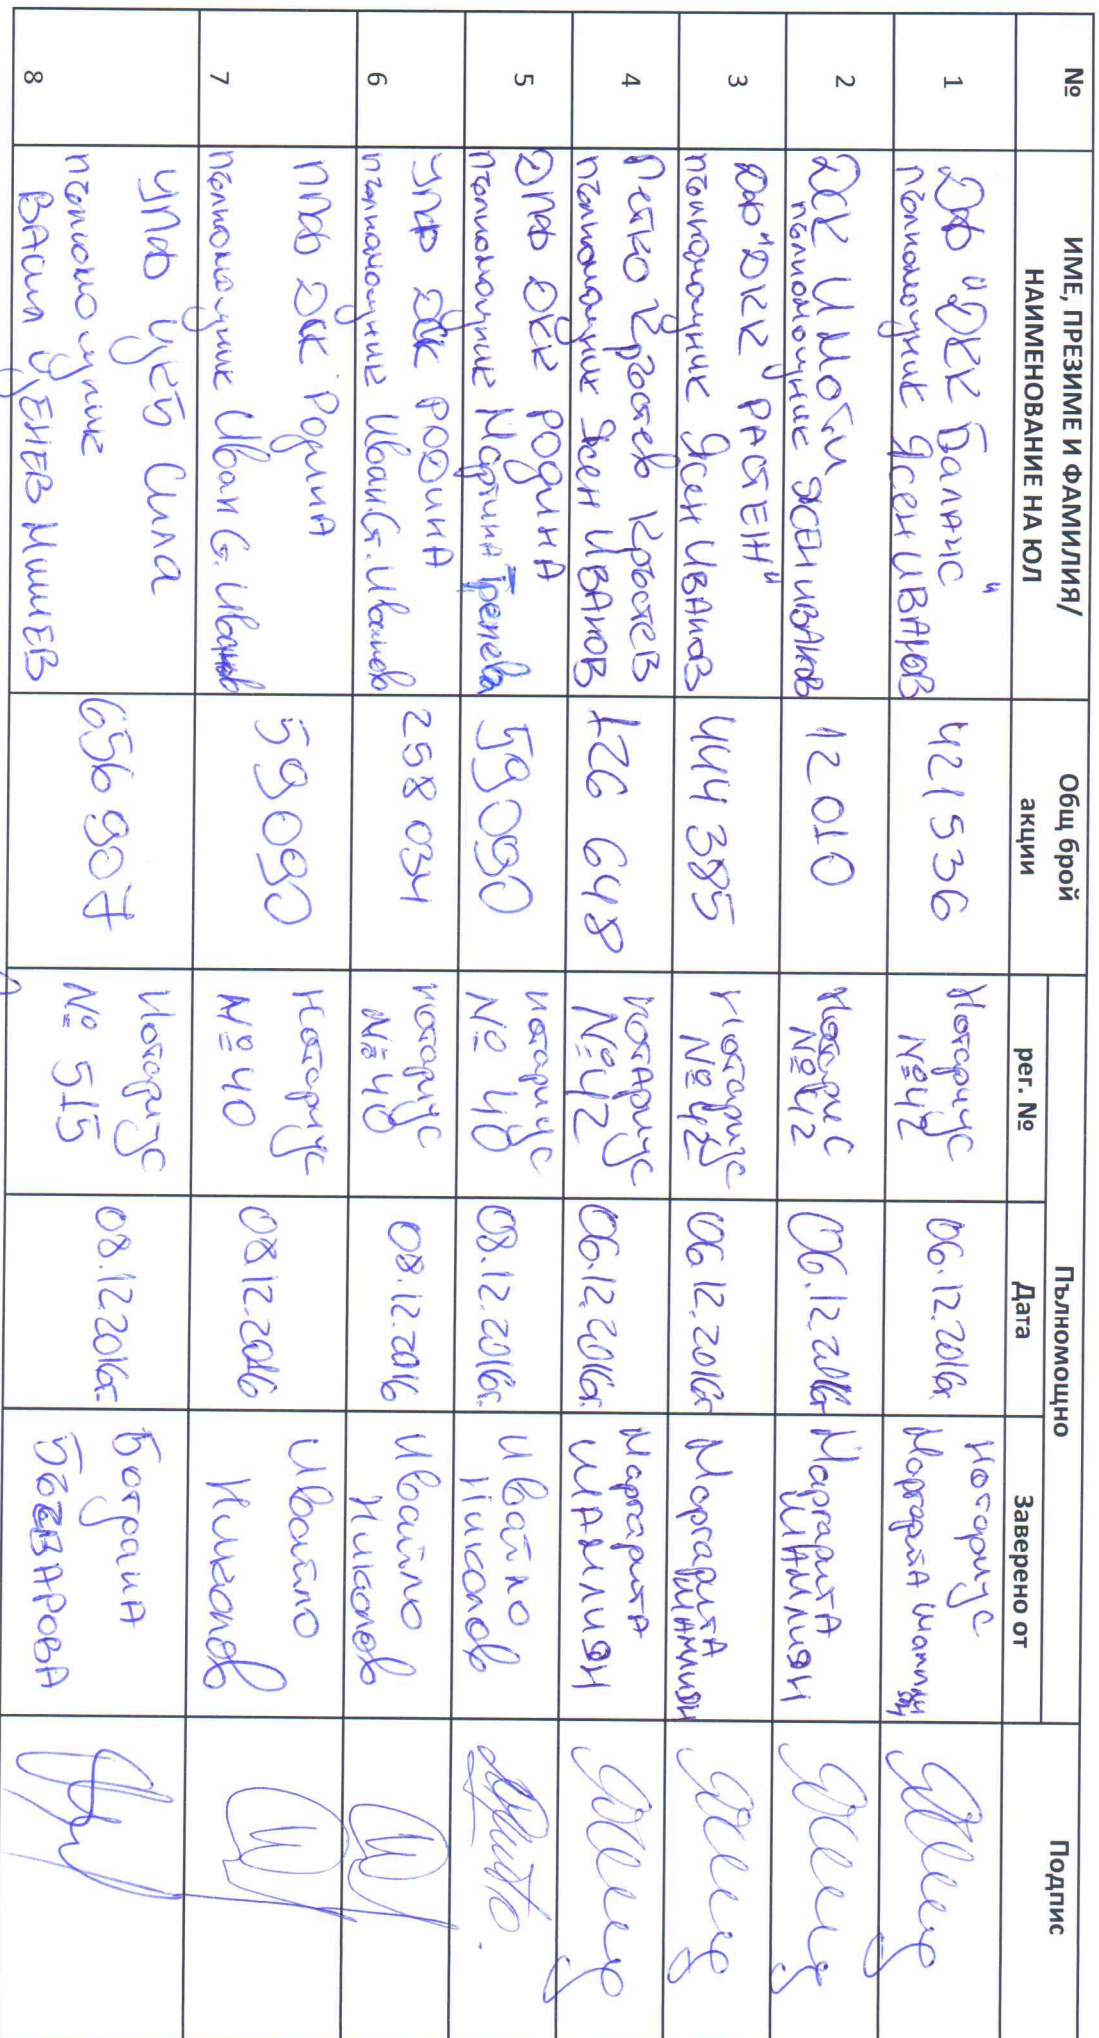 №
ИМЕ, ПРЕЗИМЕ И ФАМИЛИЯ/
НАИМЕНОВАНИЕ НА ЮЛ
Общ брой
акции
Пълномощно
рег. №
Дата
Заверено от
Подпис
1
ДФ "ДСК Баланс"
пълномощник Ясен ИВАНОВ
421 536
Нотариус
№ 42
06.12.2016г.
Нотариус
Маргарита Шамлиян
2
ДСК Имоти
пълномощник ЯСЕН ИВАНОВ
12 010
Нотариус
№ 42
06.12.2016г
Маргарита
ШАМЛИЯН
3
ДФ "ДСК РАСТЕЖ"
пълномощник Ясен ИВАНОВ
444 385
Нотариус
№ 42
06.12.2016г
Маргарита
ШАМЛИЯН
4
Петко Кръстев Кръстев
пълномощник Ясен ИВАНОВ
126 648
Нотариус
№ 42
06.12.2016г.
Маргарита
ШАМЛИЯН
5
ДПФ ДСК РОДИНА
пълномощник Мартина
59 090
Нотариус
№ 40
08.12.2016г.
Ивайло
Николов
6
УПФ ДСК РОДИНА
пълномощник Иван Ст. Иванов
258 034
Нотариус
№ 40
08.12.2016
Ивайло
Николов
7
ППФ ДСК Родина
пълномощник Иван Ст. Иванов
59 090
Нотариус
№ 40
08.12.2016
Ивайло
Николов
8
УПФ ЦКБ Сила
пълномощник
ВАСИЛ ЦЕНЕВ МИШЕВ
656 907
Нотариус
№ 515
08.12.2016г.